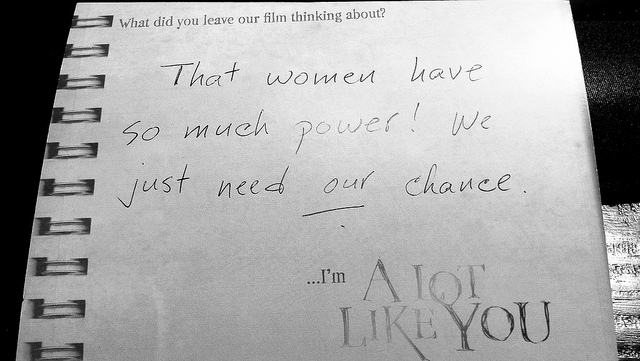 What did you leave our film thinking about?
That women have
so much power! We
just need our chance.
...I'm A LOT
LIKE YOU